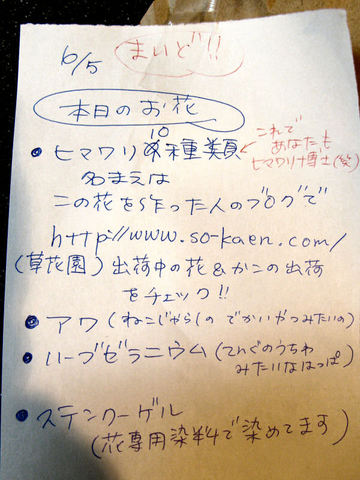 6/5 まいど!!
本日のお花
• ヒマワリ10種類 ← これで
あなたも
ヒマワリ博士(笑)
名まえは
この花を作った人のブログで
http://www.so-kaen.com/
(草花園) 出荷中の花&かこの出荷
をチェック!!
• アワ(ねこじゃらしの でかいやつみたいの)
• ハーブゼラニウム(てんぐのうちわ
みたいなはっぱ)
• ステンカーゲル
(花専用染料で染めてます)